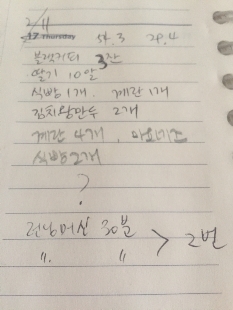 2/11
17 Thursday 54.3 29.4
블랙커피 3잔
딸기 10알
식빵 1개. 계란 1개
김치왕만두 2개
계란 4개. 마요네즈
식빵 2개
?
런닝머신 30분
〃 〃 > 2번